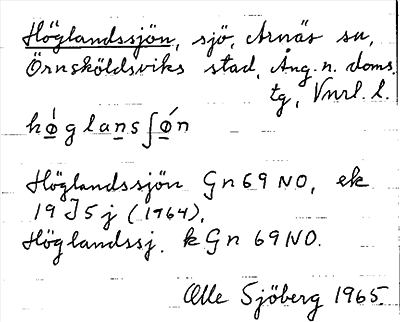 Höglandssjön, sjö, Arnäs sn,
Örnsköldsviks stad, Ång. n. doms.
tg, Vnrl. l.
hǿglansʃǿn
Höglandssjön Gn69NO, ek
19J5j (1964),
Höglandssj. kGn69NO.
Olle Sjöberg 1965.